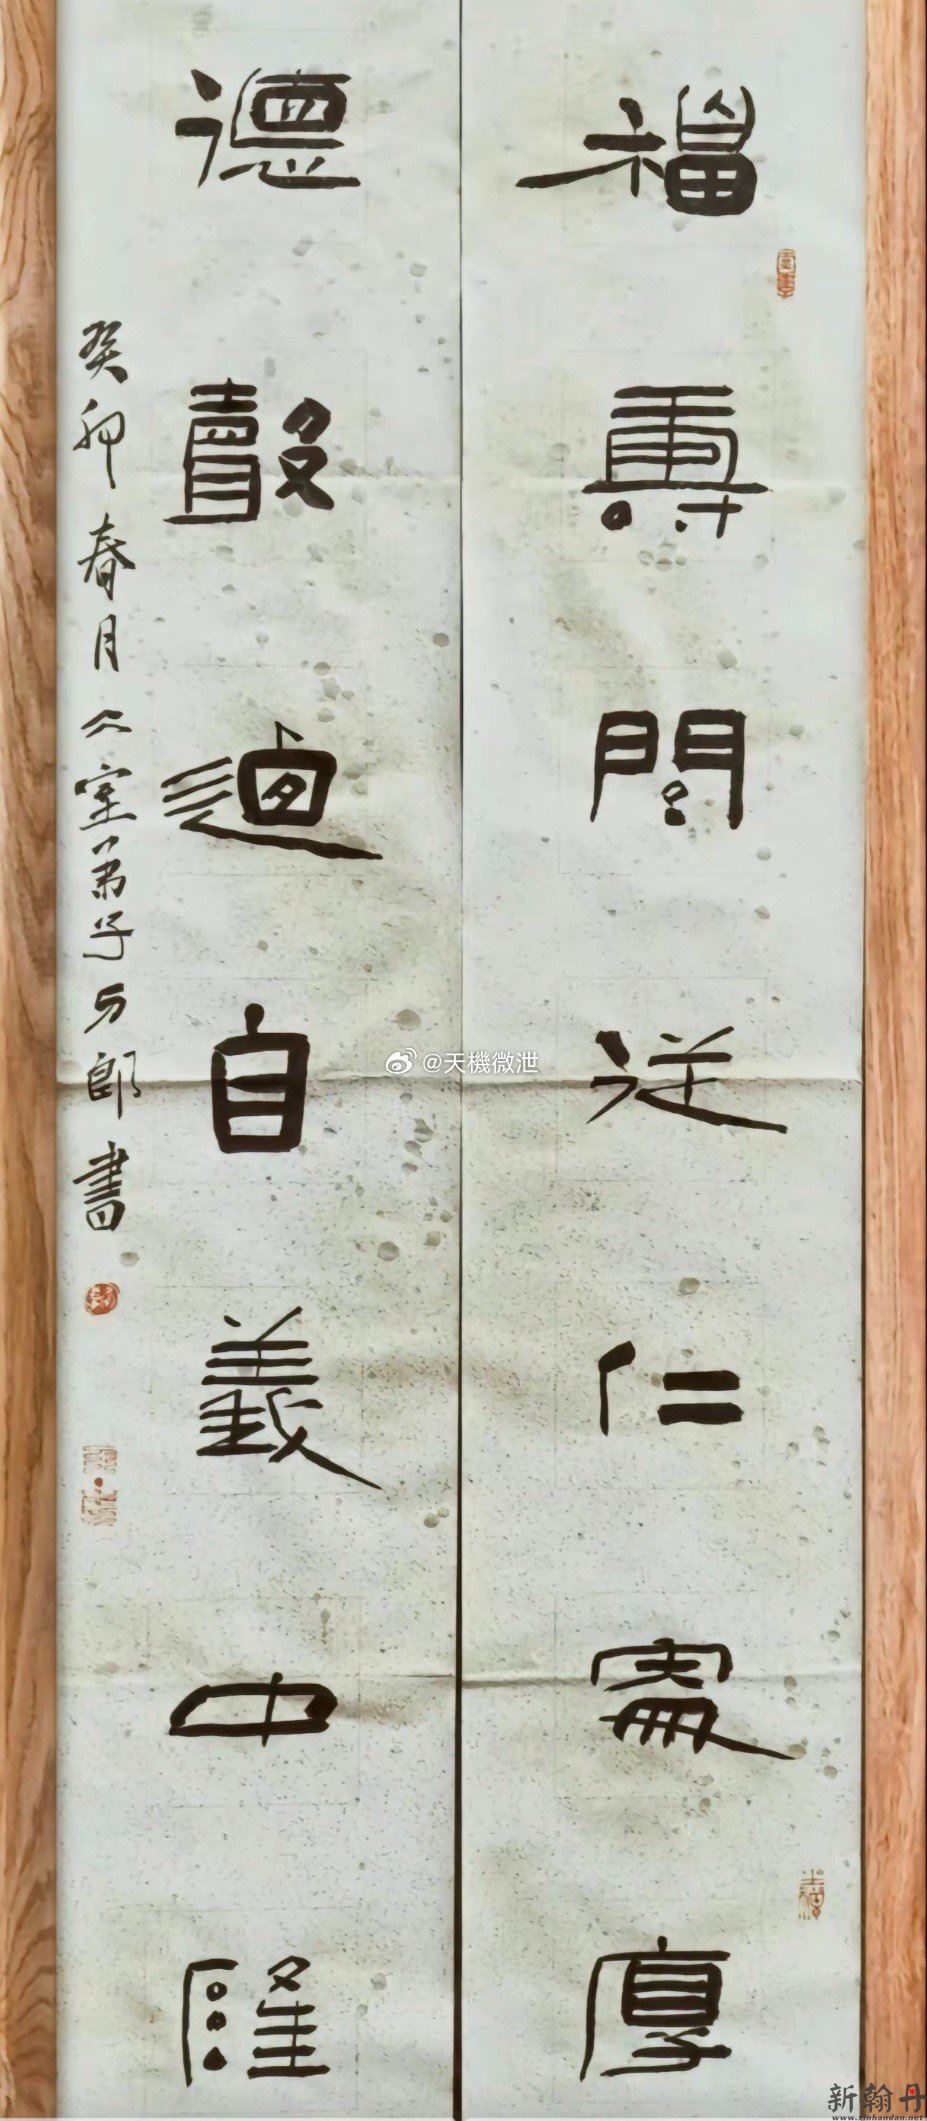 福壽從仁厚
德自義中隆
癸卯春月入室弟子郎書
@天機微泄
新翰丹
www.xinhandan.net